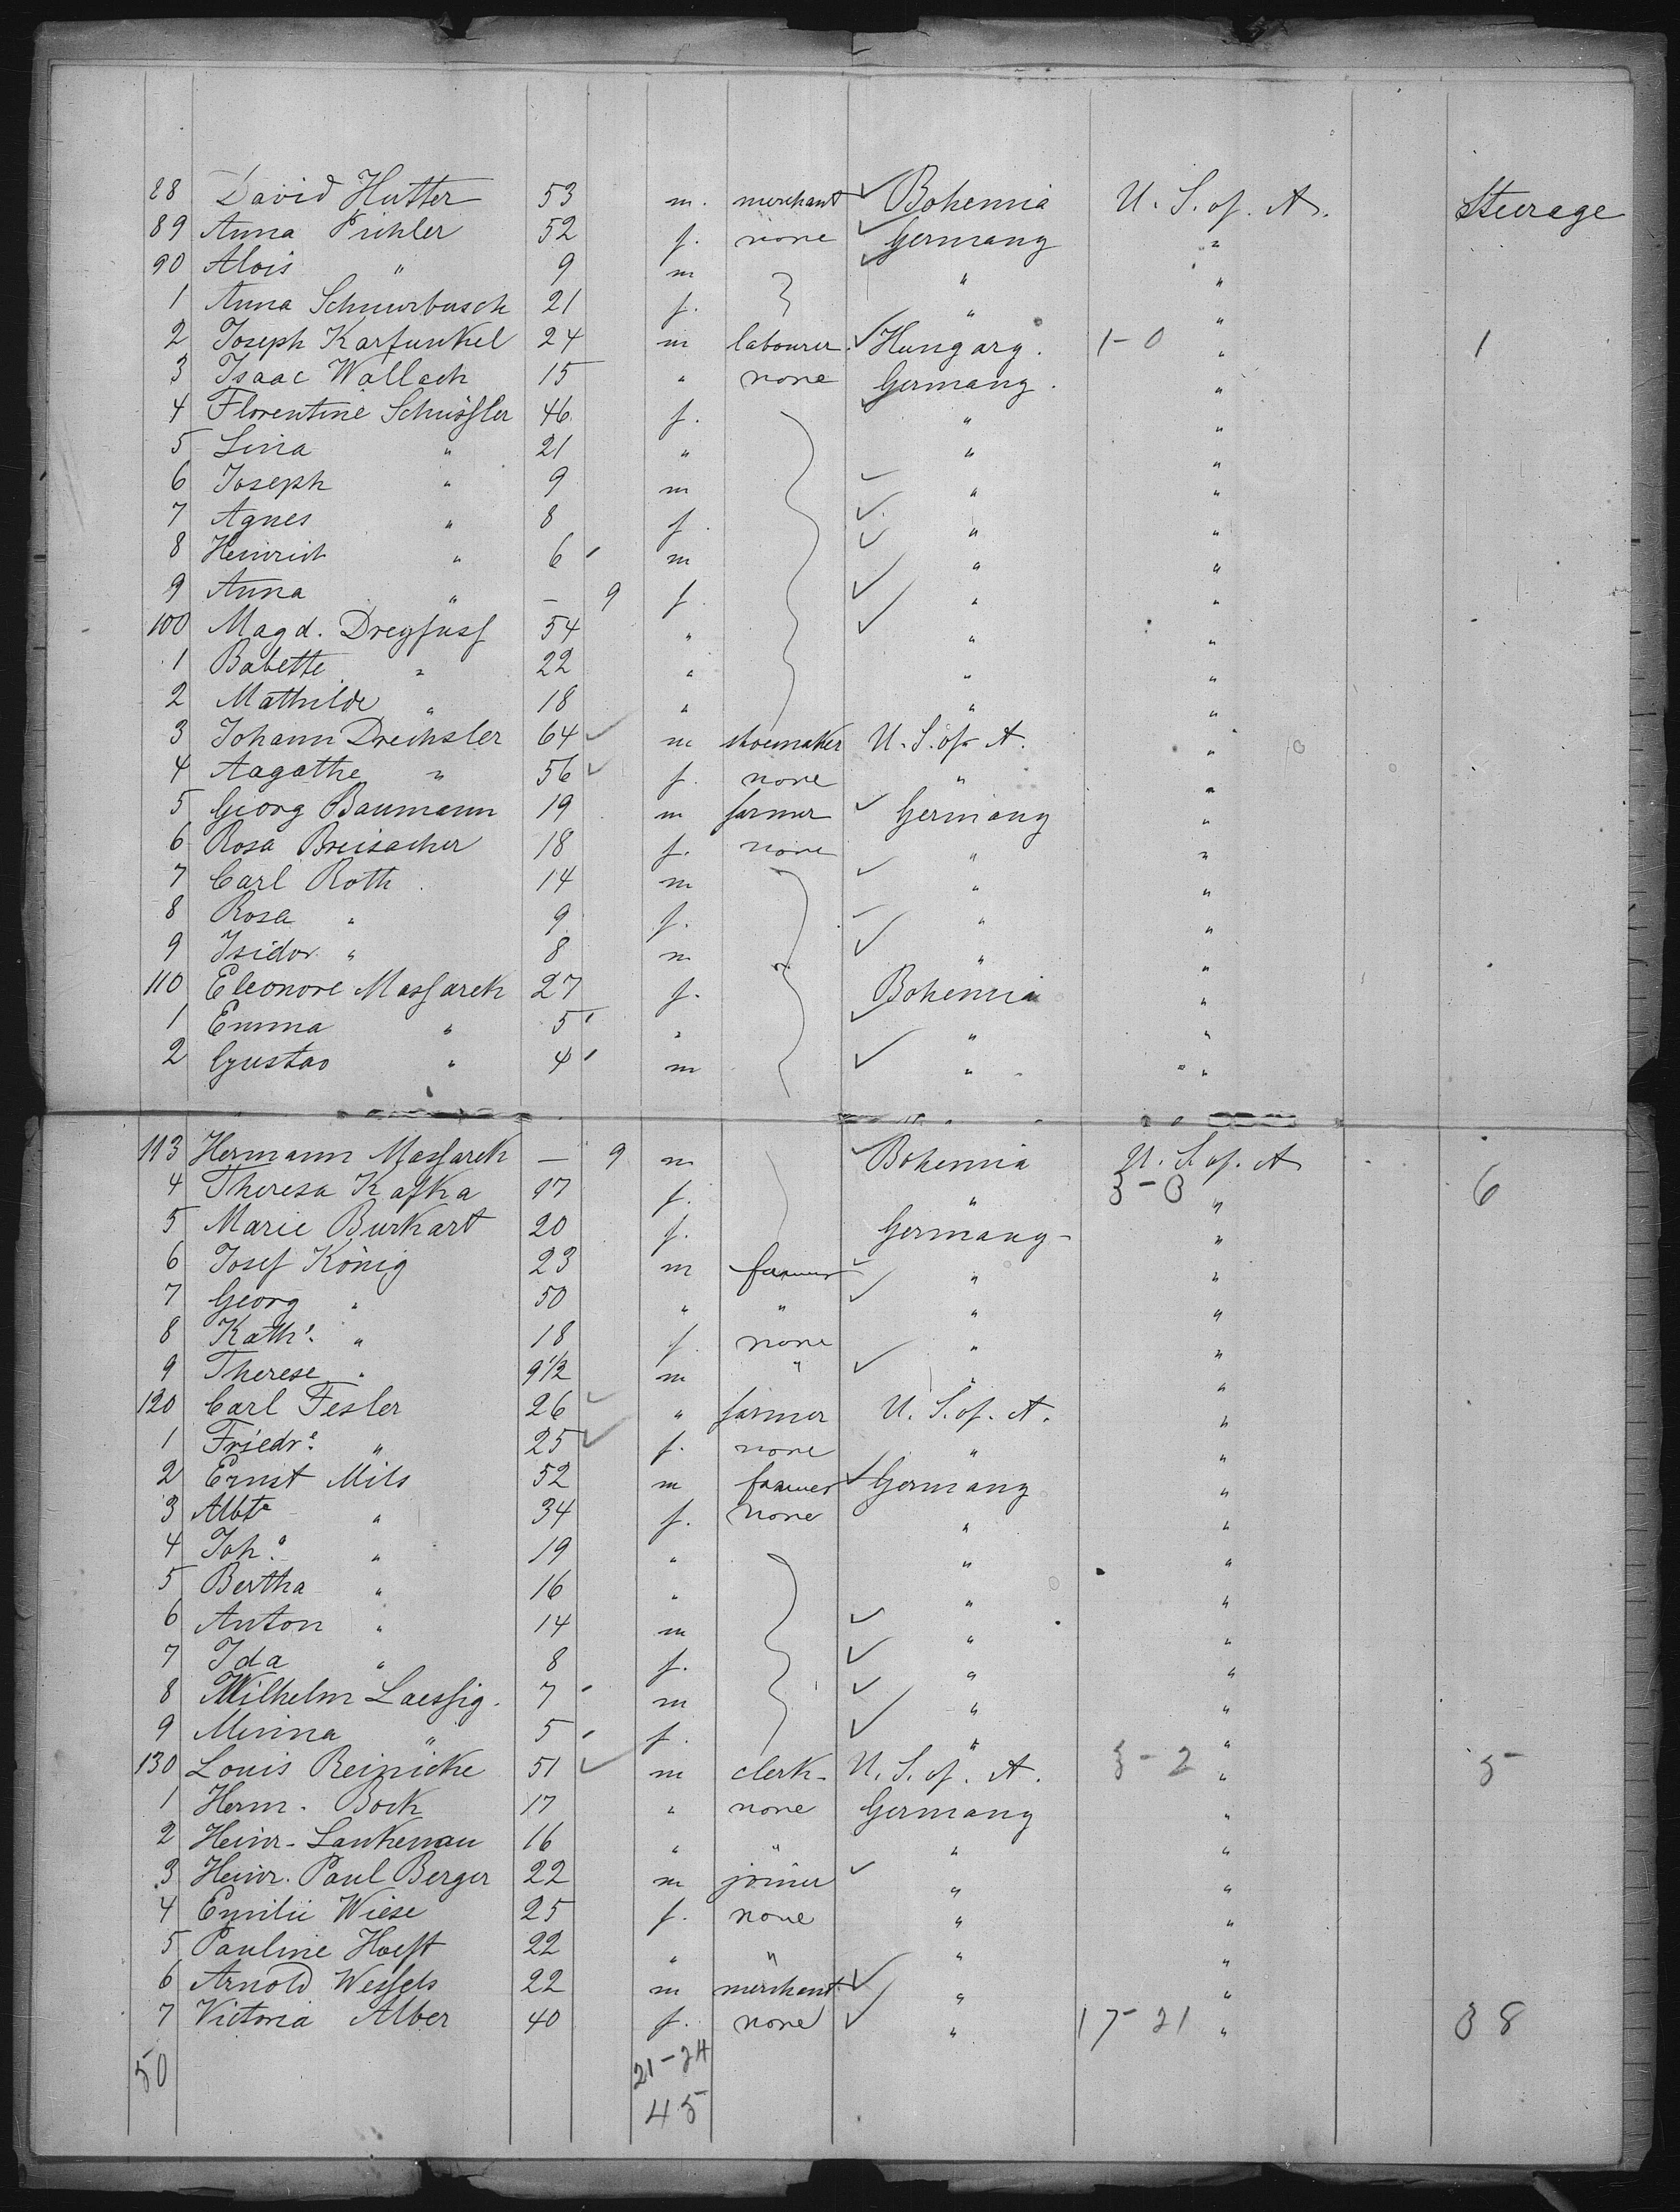 88 David Hutter 53 m. merchant Bohemia U. S. of. A. Steerage
89 Anna Pichler 52 f. none Germany "
90 Alois " 9 m " "
1 Anna Schnurbusch 21 f. " "
2 Joseph Karfunkel 24 m labourer. Hungary. 1-0 " 1
3 Isaac Wallach 15 " none Germany. "
4 Florentine Schüssler 46 f. " "
5 Lina " 21 " " "
6 Joseph " 9 m " "
7 Agnes " 8 f. " "
8 Heinrich " 6 m " "
9 Anna " — 9 f. " "
100 Magd. Dreyfuss 54 " " "
1 Babette " 22 " " "
2 Mathilde " 18 " " "
3 Johann Drechsler 64 m shoemaker U. S. of A. "
4 Aagathe " 56 f. none " "
5 Georg Baumann 19 m farmer Germany "
6 Rosa Breisacher 18 f. none " "
7 Carl Roth 14 m " "
8 Rosa " 9 f. " "
9 Isidor " 8 m " "
110 Eleonore Massarek 27 f. Bohemia "
1 Emma " 5 " " "
2 Gustav " 4 m " "
113 Hermann Massarek — 9 m Bohemia U. S. of. A
4 Theresa Kafka 17 f. " 3-3 " 6
5 Marie Burkart 20 f. Germany "
6 Josef König 23 m farmer " "
7 Georg " 50 " " " "
8 Kathe. " 18 f. none " "
9 Therese " 9 1/2 m " " "
120 Carl Fesler 26 " farmer U. S. of. A. "
1 Friedre. " 25 f. none " "
2 Ernst Mils 52 m farmer Germany "
3 Albte " 34 f. none " "
4 Joh.a " 19 " " "
5 Bertha " 16 " " "
6 Anton " 14 m " "
7 Ida " 8 f. " "
8 Wilhelm Laessig. 7 m " "
9 Minna " 5 f. " "
130 Louis Reinicke 51 m clerk U. S. of. A. 3-2 " 5
1 Herm. Bock 17 " none Germany "
2 Heinr. Lankenau 16 " " " "
3 Heinr. Paul Berger 22 m joiner " "
4 Emilie Wiese 25 f. none " "
5 Pauline Hoeft 22 " " " "
6 Arnold Wessels 22 m merchant " "
7 Victoria Alber 40 f. none " 17-21 " 38
50 21-24
45